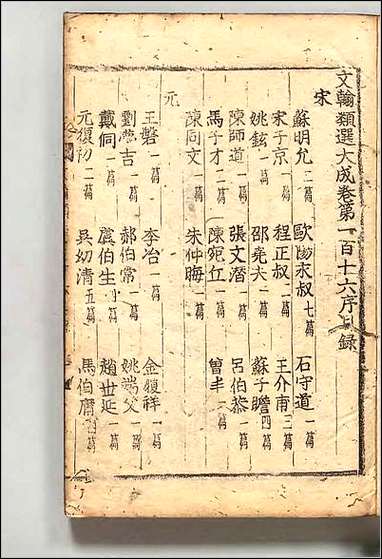 文翰類選大成卷第一百十六序目錄
宋
蘇明允二篇 歐陽永叔七篇 石守道一篇
宋子京一篇 程正叔二篇 王介甫三篇
姚鉉一篇 邵堯夫一篇 蘇子瞻四篇
陳師道一篇 張文潛一篇 呂伯恭一篇
馬子才二篇 陳宛丘一篇 曾丰
陳同文一篇 朱仲晦二篇
元
王磐一篇 李冶一篇 金履祥一篇
劉夢吉一篇 郝伯常一篇 姚端父一篇
戴侗一篇 虞伯生 趙世延一篇
元復初二篇 吳幼清五篇 馬伯庸